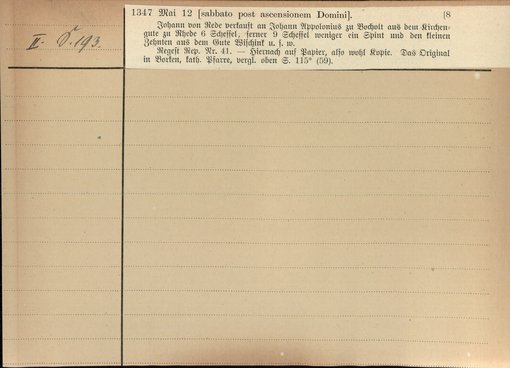 1347 Mai 12 [sabbato post ascensionem Domini]. [8
Johann von Rede verkauft an Johann Appolonius zu Bocholt aus dem Kirchen-
gute zu Rhede 6 Scheffel, ferner 9 Scheffel weniger ein Spint und den kleinen
Zehnten aus dem Gute Wischink u. s. w.
Regest Rep. Nr. 41. — Hiernach auf Papier, also wohl Kopie. Das Original
in Borken, kath. Pfarre, vergl. oben S. 115* (59).
II. S. 193.